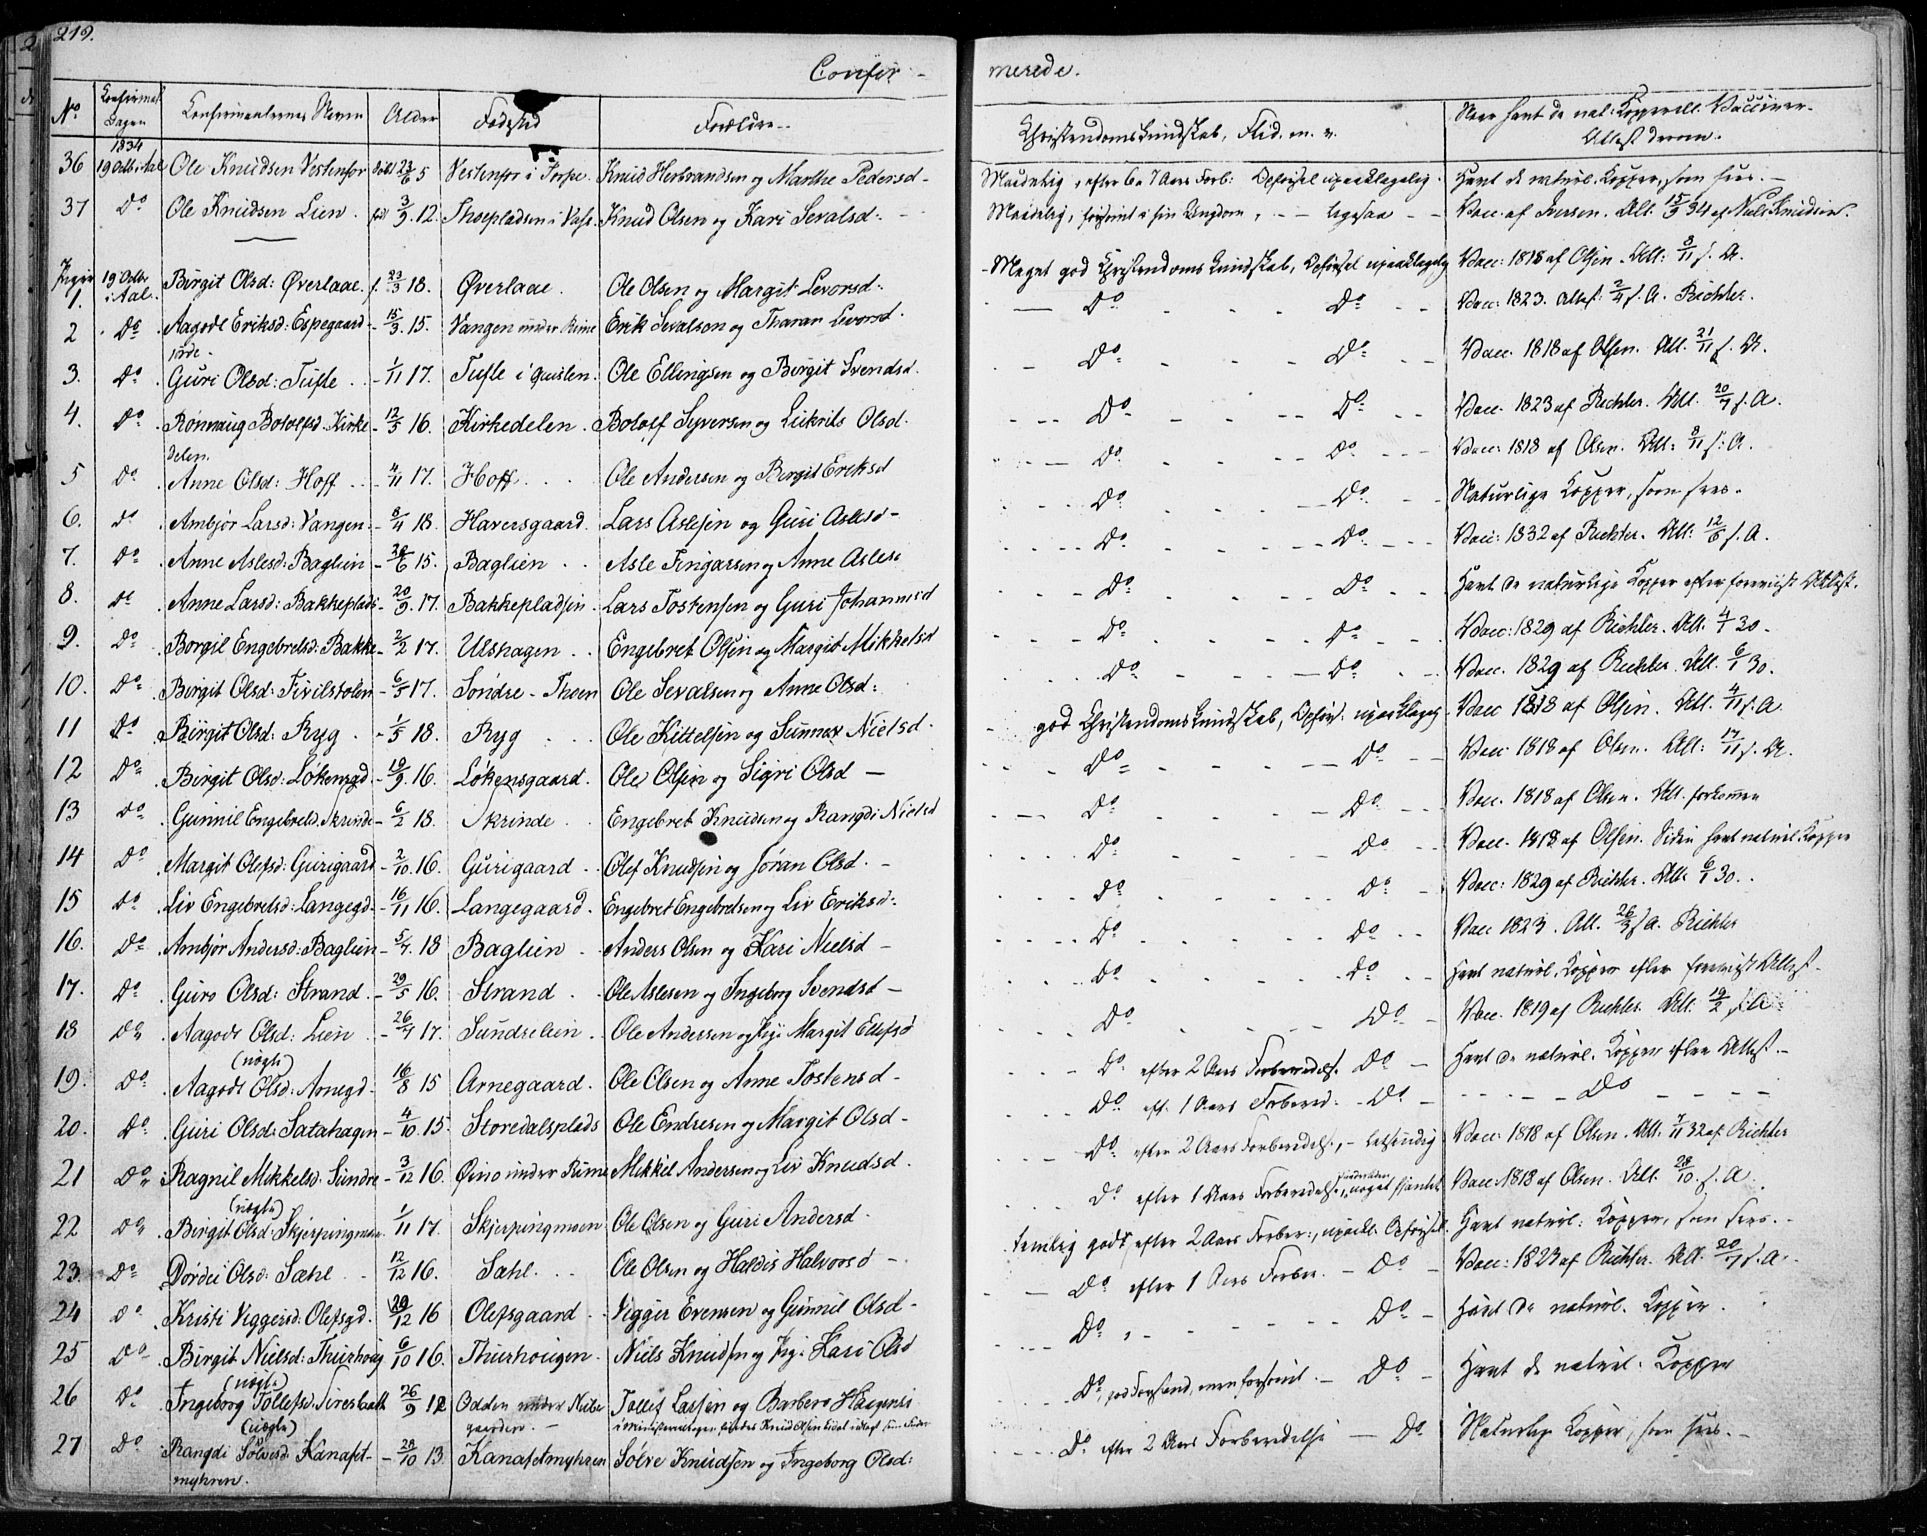 219.
Confir-
merede.
No Confirmat. Dagen Konfirmanternes Navn Alder Fødested Forældre.. Christendomskundskab, Flid. m. v. Naar havt de nat: Kopper ell. Vacciner. Attest derom.
1834
36 19 Octb i Aal Ole Knudsen Vestenfor døbt 23/6 5 Vestenfor i Torpe. Knud Herbrandsen og Marthe Pedersd- Maadelig, efter 6 a 7 Aars Forb: Opførsel upaaklagelig. Havt de naturl. Kopper, som sees. -
37 Do Ole Knudsen Lien. fød 3/9 12. Thoepladsen i Vats. Knud Olsen og Kari Sevalsd: - Maadelig, forsømt i sin Ungdom, - - ligesaa - - Vacc. af Iversen. Att. 15/9 34 af Niels Knudsen.
Piger
1. 19 Octbr. i Aal. Birgit Olsd: Øverlaae. f. 23/3 18. Øverlaae. Ole Olsen og Margit Levorsd:. - Meget god Christendoms kundskab, Opførsel upaaklagelig Vacc: 1818 af Olsen. Att: 8/11 f. A.
2 Do Aagodt Eriksd: Espegaard- 15/3 15. Vangen under Rime Erik Sevalson og Tharan Levorsd. Do Do Vacc: 1823. Attest: 2/4 f. A. Richter.
jorde.
3. Do Guri Olsd: Tufte. - 1/11 17. Tufte i Quislen. Ole Ellingsen og Birgit Svendsd. Do Do Vacc. 1818 af Olsen. Att. 21/11 f. A.
4. Do Rønnaug Botolfsd. Kirke- 12/5 16. Kirkedelen. Botolf Syversen og Liikrils Olsd. Do Do Vacc. 1823 af Richter. Att. 20/7 f. A.
delen.
5 Do Anne Olsd: Hoff.. - 4/11 17. Hoff. Ole Andersen og Birgit Eriksd Do Do Vacc: 1818 af Olsen. Att: 8/11 f. A.
6. Do Ambjør Larsd: Vangen. - 8/4 18. Haversgaard. Lars Aslesen og Guri Aslesd- Do Do Naturlige Kopper, som sees.
7. Do Anne Aslesd: Baglien - 28/6 15. Baglien.. Asle Fingarsen og Anne Aslesd Do Do Vacc: 1832 af Richter. Att: 12/6 f. A.
8. Do Anne Larsd: Bakkeplads - 20/9. 17. Bakkepladsen. Lars Tostensen og Guri Johannisd Do Do Havt de naturlige Kopper efter foreviist Attest.
9. Do Borgil Engebretsd. Bakke - 2/2 17. Ulshagen.. Engebret Olsen og Margit Mikkelsd Do Do Vacc: 1829 af Richter. Att. 4/1 30.
10. Do Birgit Olsd: Tivilstolen - 6/5 17. Søndre - Thoen Ole Sevalsen og Anne Olsd: Do Do Vacc. 1829 af Richter. Att. 6/1 30.
11 Do Birgit Olsd: Ryg. - 1/5 18. Ryg Ole Kittelsen og Sunnev Nielsd. god Christendomskundskab, Opførs. upaaklagel. Vacc 1818 af Olsen. Att. 4/11 f. A
12 Do Birgit Olsd: Løkensgd - 18/9. 16. Løkensgaard. Ole Olsen og Sigri Olsd - Do Do Vacc 1818 af Olsen. Att: 17/11 f. A.
13 Do Gunnil Engebretsd. Skrinde - 6/2 18. Skrinde.. Engebret Knudsen og Rangdi Nielsd Do Do Vacc. 1818 af Olsen. Att. forkommen
14 Do Margit Olefsd: Gurigaard - 2/10. 16. Gurigaard. Olef Knudsen og Jøran Olsd. - Do Do Vacc. 1818 af Olsen. Siden havt naturl. Kopper
15 Do Liv Engebretsd: Langegd - 16/11 16. Langegaard. Engebret Engebretsen og Liv Eriksd:. Do Do Vacc: 1829 af Richter. Att: 6/1 30..
16. Do Ambjør Andersd: Baglien - 5/7. 18 Baglien. Anders Olsen og Kari Nielsd - Do Do Vacc 1823. Att. 26/3 f A. Richter
17. Do Guro Olsd: Strand. - 29/5 16. Strand.. Ole Aslesen og Ingeborg Svendsd - Do Do Havt naturl. Kopper efter foreviist Attest.
18 Do Aagodt Olsd: Lien - 26/7 17. Sundrelien. Ole Andersen og Pig: Margit Ellefsd Do Do Vacc. 1819 af Richter. Att. 19/2 f. A
(uægte)
19. Do Aagodt Olsd: Arnegd - 16/8 15 Arnegaard. Ole Olsen og Anne Tostensd - Do efter 2 Aars Forberedels. Do Havt de naturl. Kopper efter Attest. -
20. Do Guri Olsd: Satahagen - 4/10. 15. Storedalsplads Ole Endresen og Margit Olsd - Do eft. 1 Aars Forbered. Do Do
21 Do Ragnil Mikkelsd: Sundre - 3/12 16. Øino under Rime Mikkel Andersen og Liv Knudsd. Do efter 2 Aars Forberedelse, - letsindig Vacc: 1818 af Olsen. Att. 7/11 32 af Richter
(uægte)
22 Do Birgit Olsd: Skjerpingmoen 1/11 17. Skjerpingmoen Ole Olsen og Guri Andersd. Do efter 1 Aars Forberedelse, noget Vacc. 1818 af Olsen. Att. 28/10. f. A
23. Do Dordei Olsd: Sæhl. 12/12 16. Sæhl. Ole Olsen og Haldis Halvorsd - temlig godt, efter 2 Aars Forber:, upaakl. Opførsel. Havt naturl: Kopper, som sees.
24 Do Kristi Viggersd: Olefsgd. 20/12 16 Olefsgaard Vigger Evensen og Gunnil Olsd - Do efter 1 Aars Forber. - Do Vacc: 1823 af Richter. Att. 20/7 f. A.
25 Do Birgit Nielsd: Thurhoug 6/10 16. Thurhougen. Niels Knudsen og Pig: Kari Olsd Do Do Havt de naturl. Kopper.
(uægte)
26 Do Ingeborg Tollefsd. 26/9 12 Odden under Nube gaarden. - Tollef Larsen og Barbero Haagensd Do, god Forstand, men forsømt. - Do Havt de naturl. Kopper
(uægte)
27 Do Rangdi Sølvesd: Kanaset- 28/10 13 Kanasetmyhren Sølve Knudsen og Ingeborg Olsd: Do efter 2 Aars Forberedelse - Do Naturlige Kopper, som sees. -
myhren.